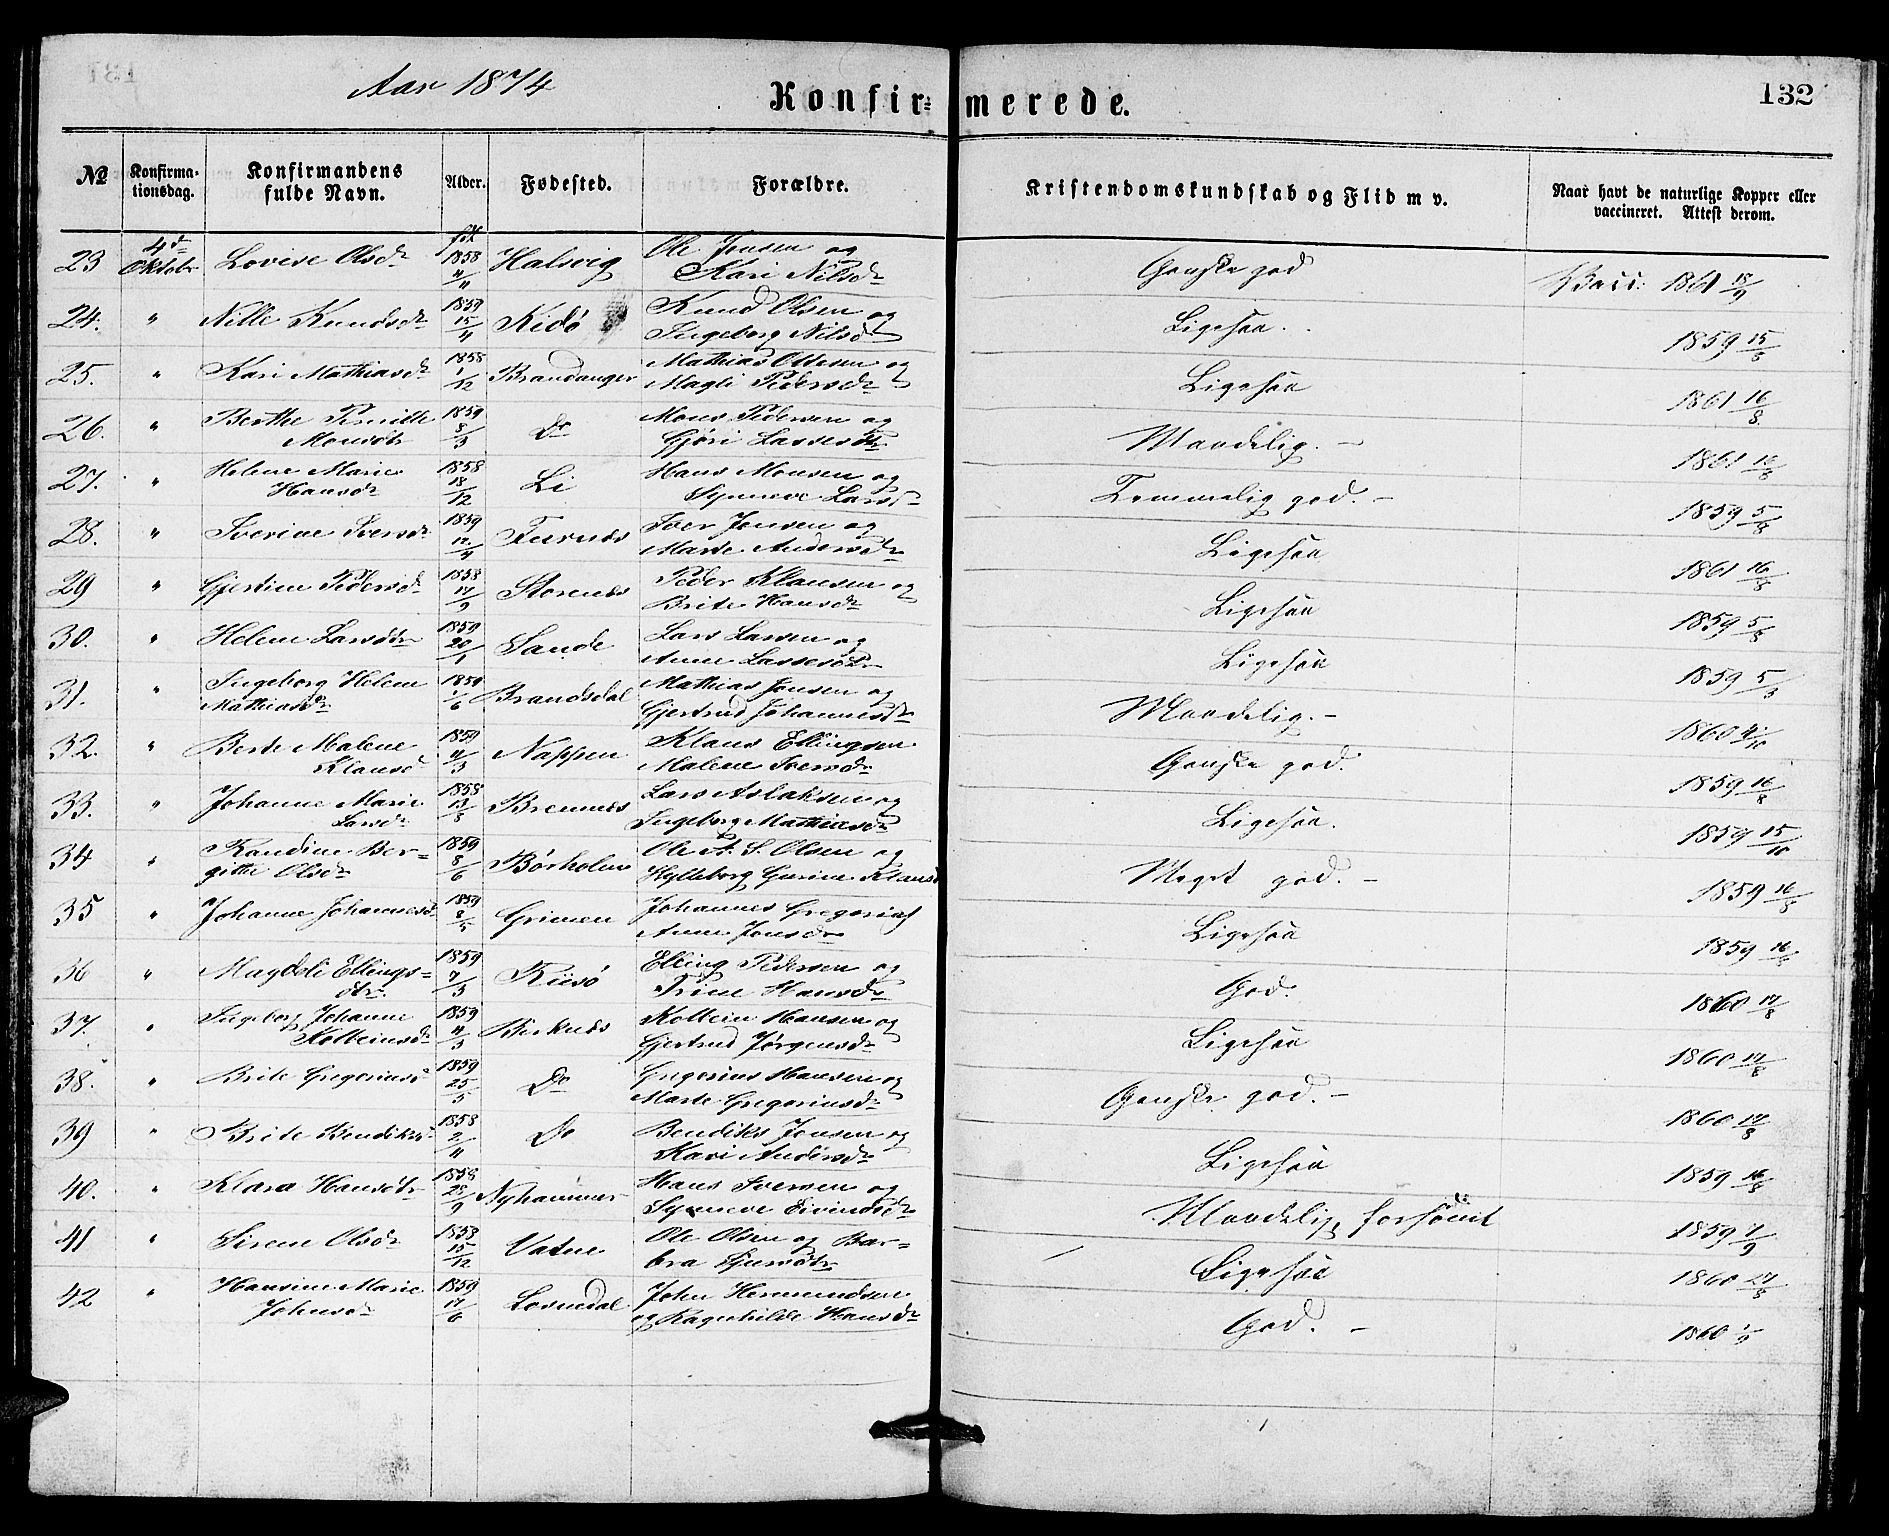 Aar 1874
Konfirmerede.
132
№
Konfirmationsdag.
Konfirmandens fulde Navn.
Alder.
Fødested.
Forældre.
Kristendomskundskab og Flid m v.
Naar havt de naturlige Kopper eller vaccineret. Attest derom.
23 4d Oktobr Lovise Olsdr født 1858 4/11 Halsvig Ole Jensen og Kari Nilsdr Ganske god Vacc: 1861 18/9
24. " Nille Knudsdr 1859 15/4 Kidø Knud Olsen og Ingeborg Nilsdr Ligesaa. 1859 15/8
25. " Kari Mathiasdr 1858 1/12 Brandanger Mathias Ottesen og Magli Pedersdr Ligesaa 1861 16/8
26. " Berthe Pernille Monsdtr 1859 8/3 Do Mons Pedersen og Gjøri Lassesdtr Maadelig. - 1861 16/8
27. " Helene Marie Hansdr 1858 18/12 Li Hans Monsen og Synneve Larsdr Temmelig god. - 1859 5/8
28. " Iverine Iversdr 1859 12/4 Furnes Iver Jensen og Marte Andersdr Ligesaa 1861 16/8
29 " Gjertine Pedersdr 1858 17/9 Storenes Peder Klausen og Brite Hansdr Ligesaa 1859 5/8
30. " Helene Larsdtr 1859 20/1 Sande Lars Larsen og Anne Lassesdtr Ligesaa 1859 5/8
31. " Ingeborg Helene Mathiasdr 1859 1/6 Brandsdal Mathias Jensen og Gjertrud Johannesdr Maadelig. - 1860 4/10
32. " Berte Malene Klausd 1859 4/3 Nappen Klaus Ellingsen Malene Iversdr Ganske god. 1859 16/8
33. " Johanne Marie Larsdr 1858 13/8 Bremnes Lars Aslaksen og Ingeborg Mathiasdr Ligesaa. 1859 15/10
34 " Randine Bergitte Olsdr 1859 8/6 Børholm Ole A. S. Olsen og Hylleborg Gurine Klausd Meget god. - 1859 16/8
35 " Johanne Johannesdr 1859 8/5 Grimen Johannes Gregorius Anne Jonsdr Ligesaa 1859 16/8
36 " Magdeli Ellingsdtr. 1859 7/3 Riisø Elling Pedersen og Trine Hansdr God. 1860 17/8
37. " Ingeborg Johanne Kolbeinsdr 1859 4/3 Birknes Kolbein Hansen og Gjertrud Jørgensdr Ligesaa 1860 17/8
38. " Brite Gregoriusd 1859 25/5 Do Gregorius Hansen og Marte Gregoriusdr Ganske god. - 1860 17/8
39 " Brite Bendiksd 1858 2/11 Do Bendiks Jensen og Kari Andersdr Ligesaa 1859 16/8
40. " Klara Hansdtr 1858 28/9 Nyhammer Hans Iversen og Synneve Eivindsdr Maadelig, forsømt 1859 7/9
41 " Sirene Olsdr 1858 15/12 Vatne Ole Olsen og Barbra Sjursdtr Ligesaa 1860 27/8
42 " Hansine Marie Johnsdr 1859 17/6 Losnedal John Hermundsen og Ragnhilde Hansdr God. - 1860 1/9